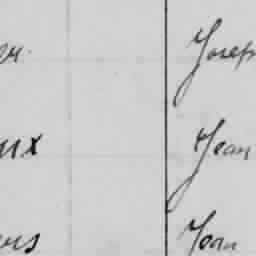 er. Joseph
ux Jean
ers Jean